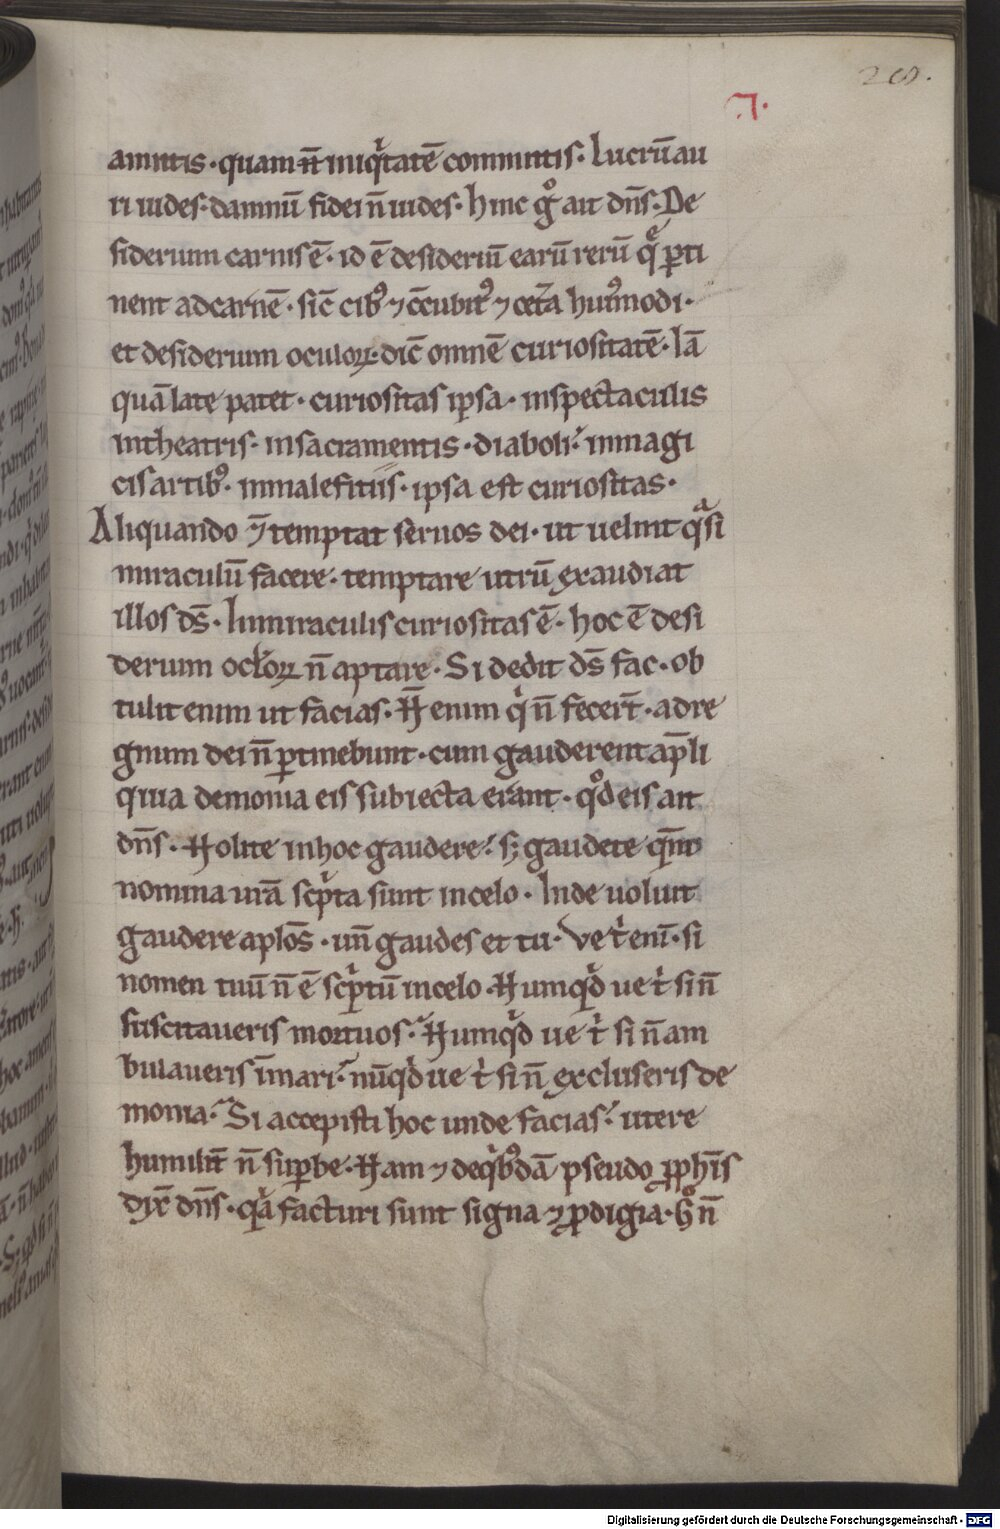 28.
7.
amittis · quam n̄ iniq̇tatē committis · Lucrū au
ri uides · damnū fidei n̄ uides · hinc g̊ ait dn̄s · De
siderium carnis ē · id ē desideriū earū rerū q̄ ꝑti
nent ad carnē · sic̄ cibꝰ ⁊ c̄cubitꝰ ⁊ cet̄a huiꝰmodi ·
et desiderium oculoꝝ · dic̄ omnē curiositatē · Iā
quā late patet · curiositas ipsa · in spectaculis
in theatris · in sacramentis · diaboli · in magi
cis artibꝰ · in malefitiis · ipsa est curiositas ·
Aliquando ⁊̄ temptat seruos dei · ut uelint qᵃsi
miraculū facere · temptare utrū exaudiat
illos ds̄ · In miraculis curiositas ē · hoc ē desi
derium ocl̄oꝝ n̄ aptare · Si dedit ds̄ fac · ob
tulit enim ut facias · N̄ enim qⁱ n̄ fecer̄t · ad re
gnum dei n̄ ꝑtinebunt · cum gauderent apl̄i
quia demonia eis subiecta erant · qͦd eis ait
dn̄s · Nolite in hoc gaudere · sꝫ gaudete qm̄
nomina ur̄a scⁱpta sunt in celo · Inde uoluit
gaudere aplōs · un̄ gaudes et tu · Ve tⁱ enī · si
nomen tuū n̄ ē scⁱptū in celo · Numqⁱd ue tⁱ si n̄
suscitaueris mortuos · Numqⁱd ue tⁱ si n̄ am
bulaueris ī mari · nūqⁱd ue tⁱ si n̄ excluseris de
monia · Si accepisti hoc unde facias · utere
humilit̄ n̄ suꝑbe · Nam ⁊ de qⁱbꝰdā pseudo ꝓph̄is
dix̄ dn̄s · qᵃ facturi sunt signa ⁊ ꝓdigia · g̊ n̄
Digitalisierung gefördert durch die Deutsche Forschungsgemeinschaft - DFG